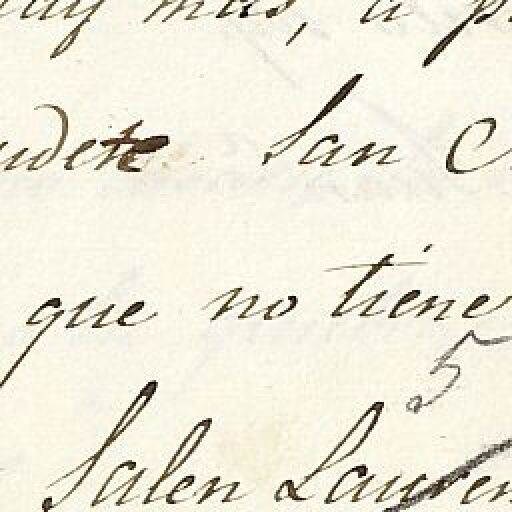 mas, a
San C
que no tiene
5
Salen Lauren